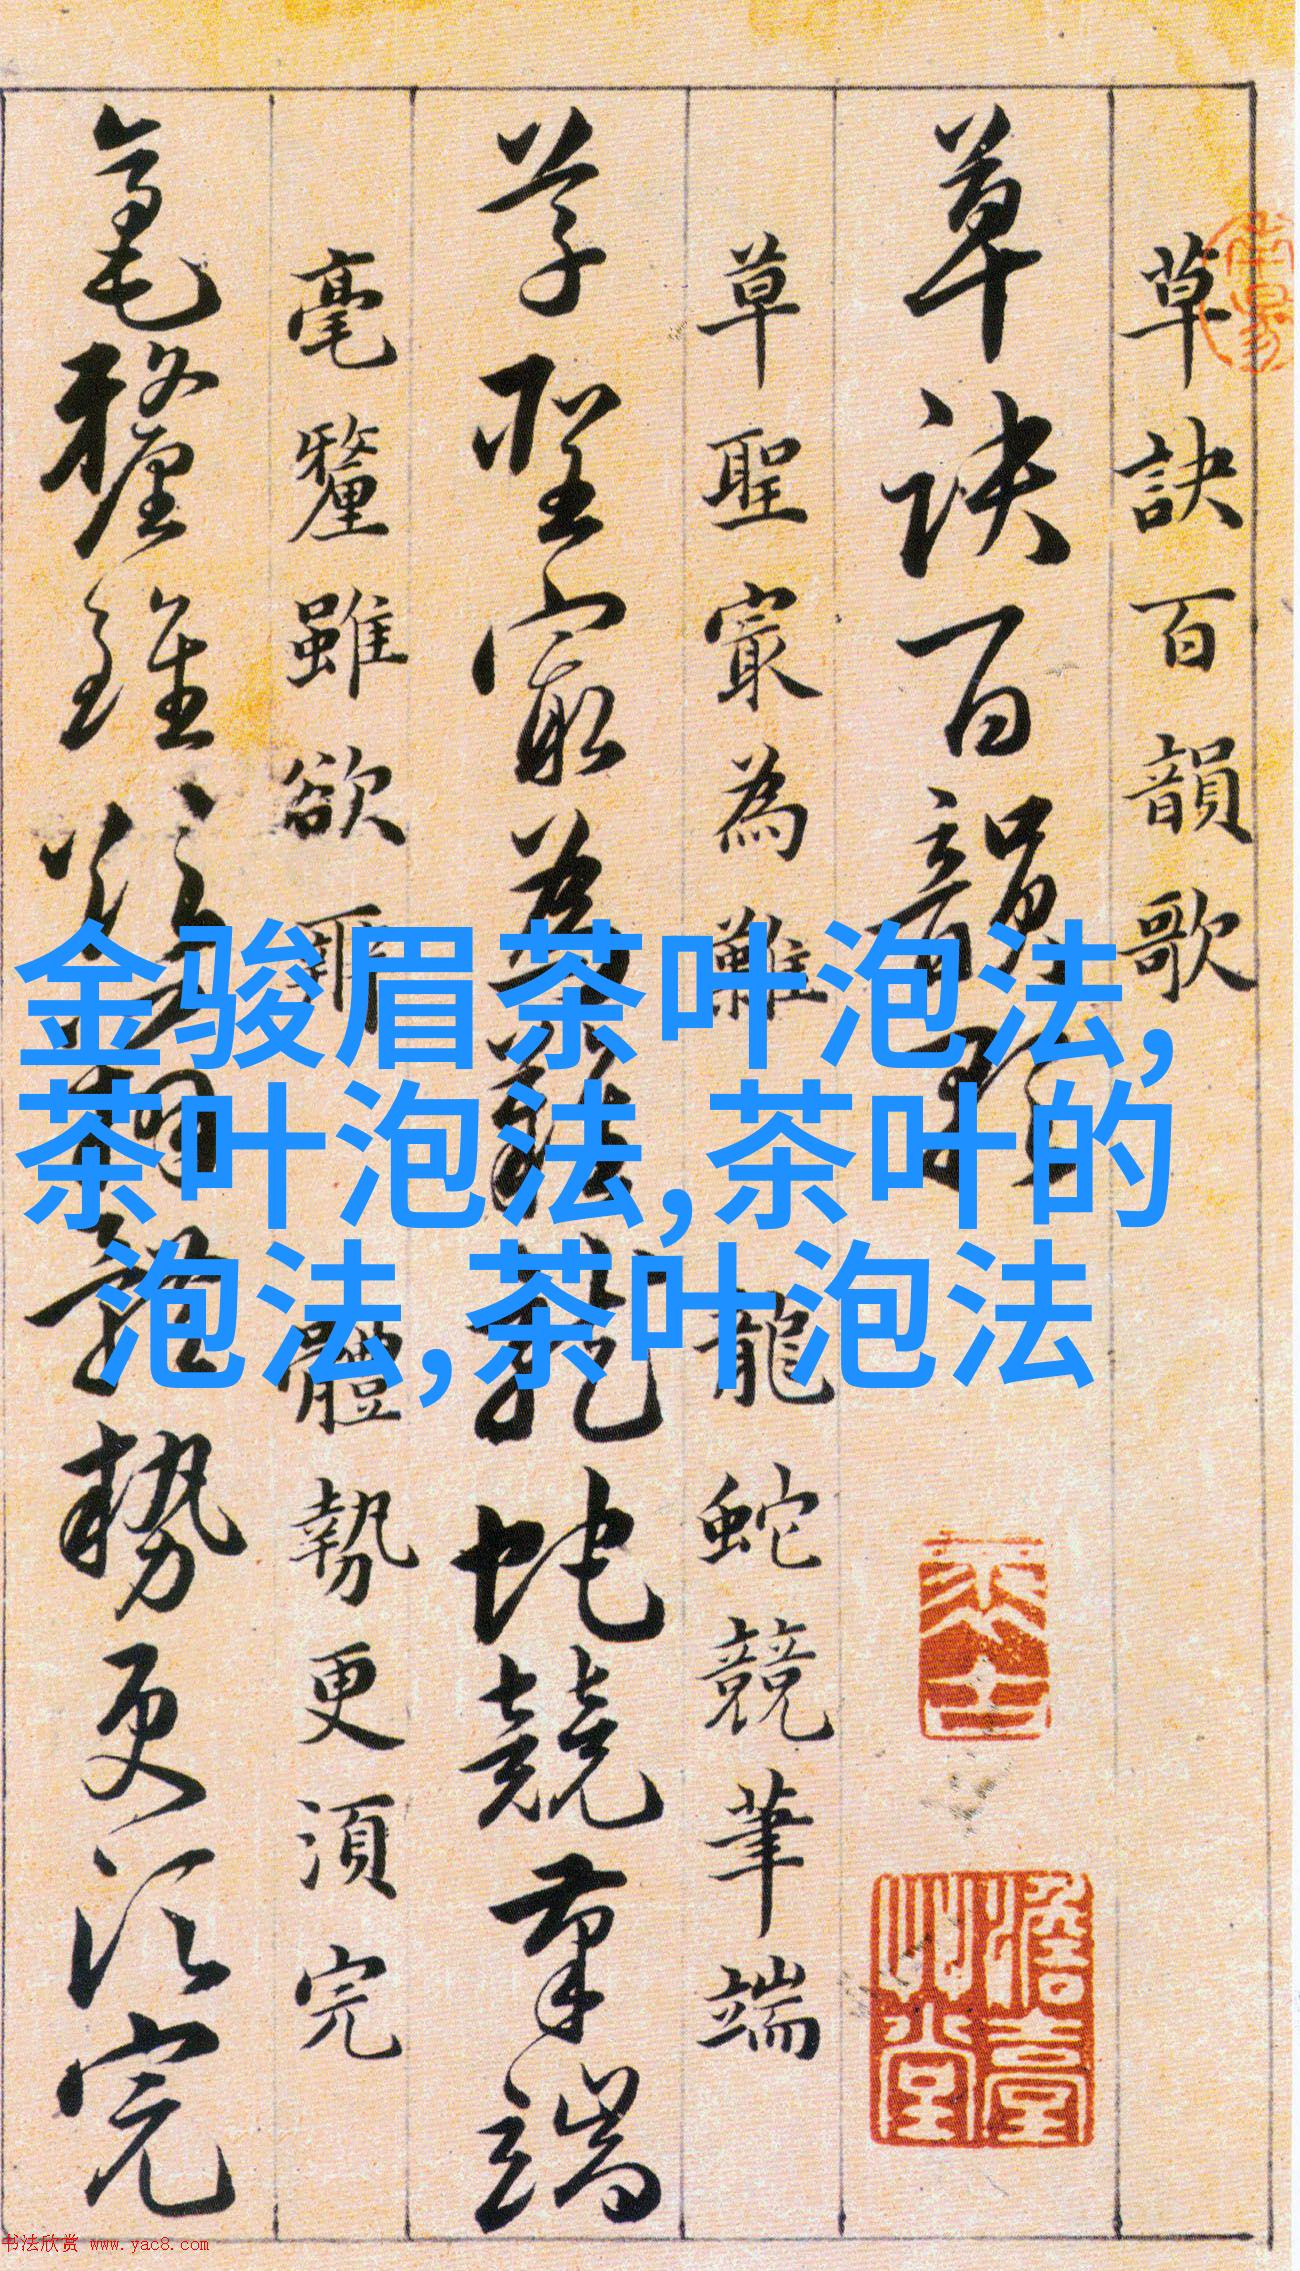 草訣百韻歌
草訣百韻歌
草聖寂為難 龍蛇競筆端
草聖寂為難 龍蛇競筆端
毫釐雖欲辨 體勢更須完
毫釐雖欲辨 體勢更須完
金骏眉茶叶泡法,
茶叶泡法,茶叶的
泡法,茶叶泡法
书法欣赏 www.yac8.com